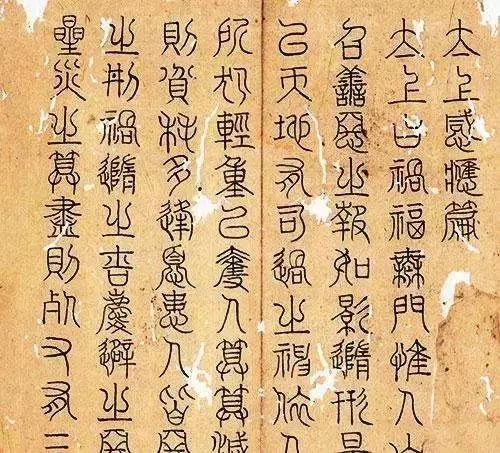 太上感應篇
太上曰禍福無門惟人自
召善惡之報如影隨形是
以天地有司過之神依人
所犯輕重以奪人算算減
則貧耗多逢憂患人皆惡
之刑禍隨之吉慶避之惡
星災之算盡則死又有三